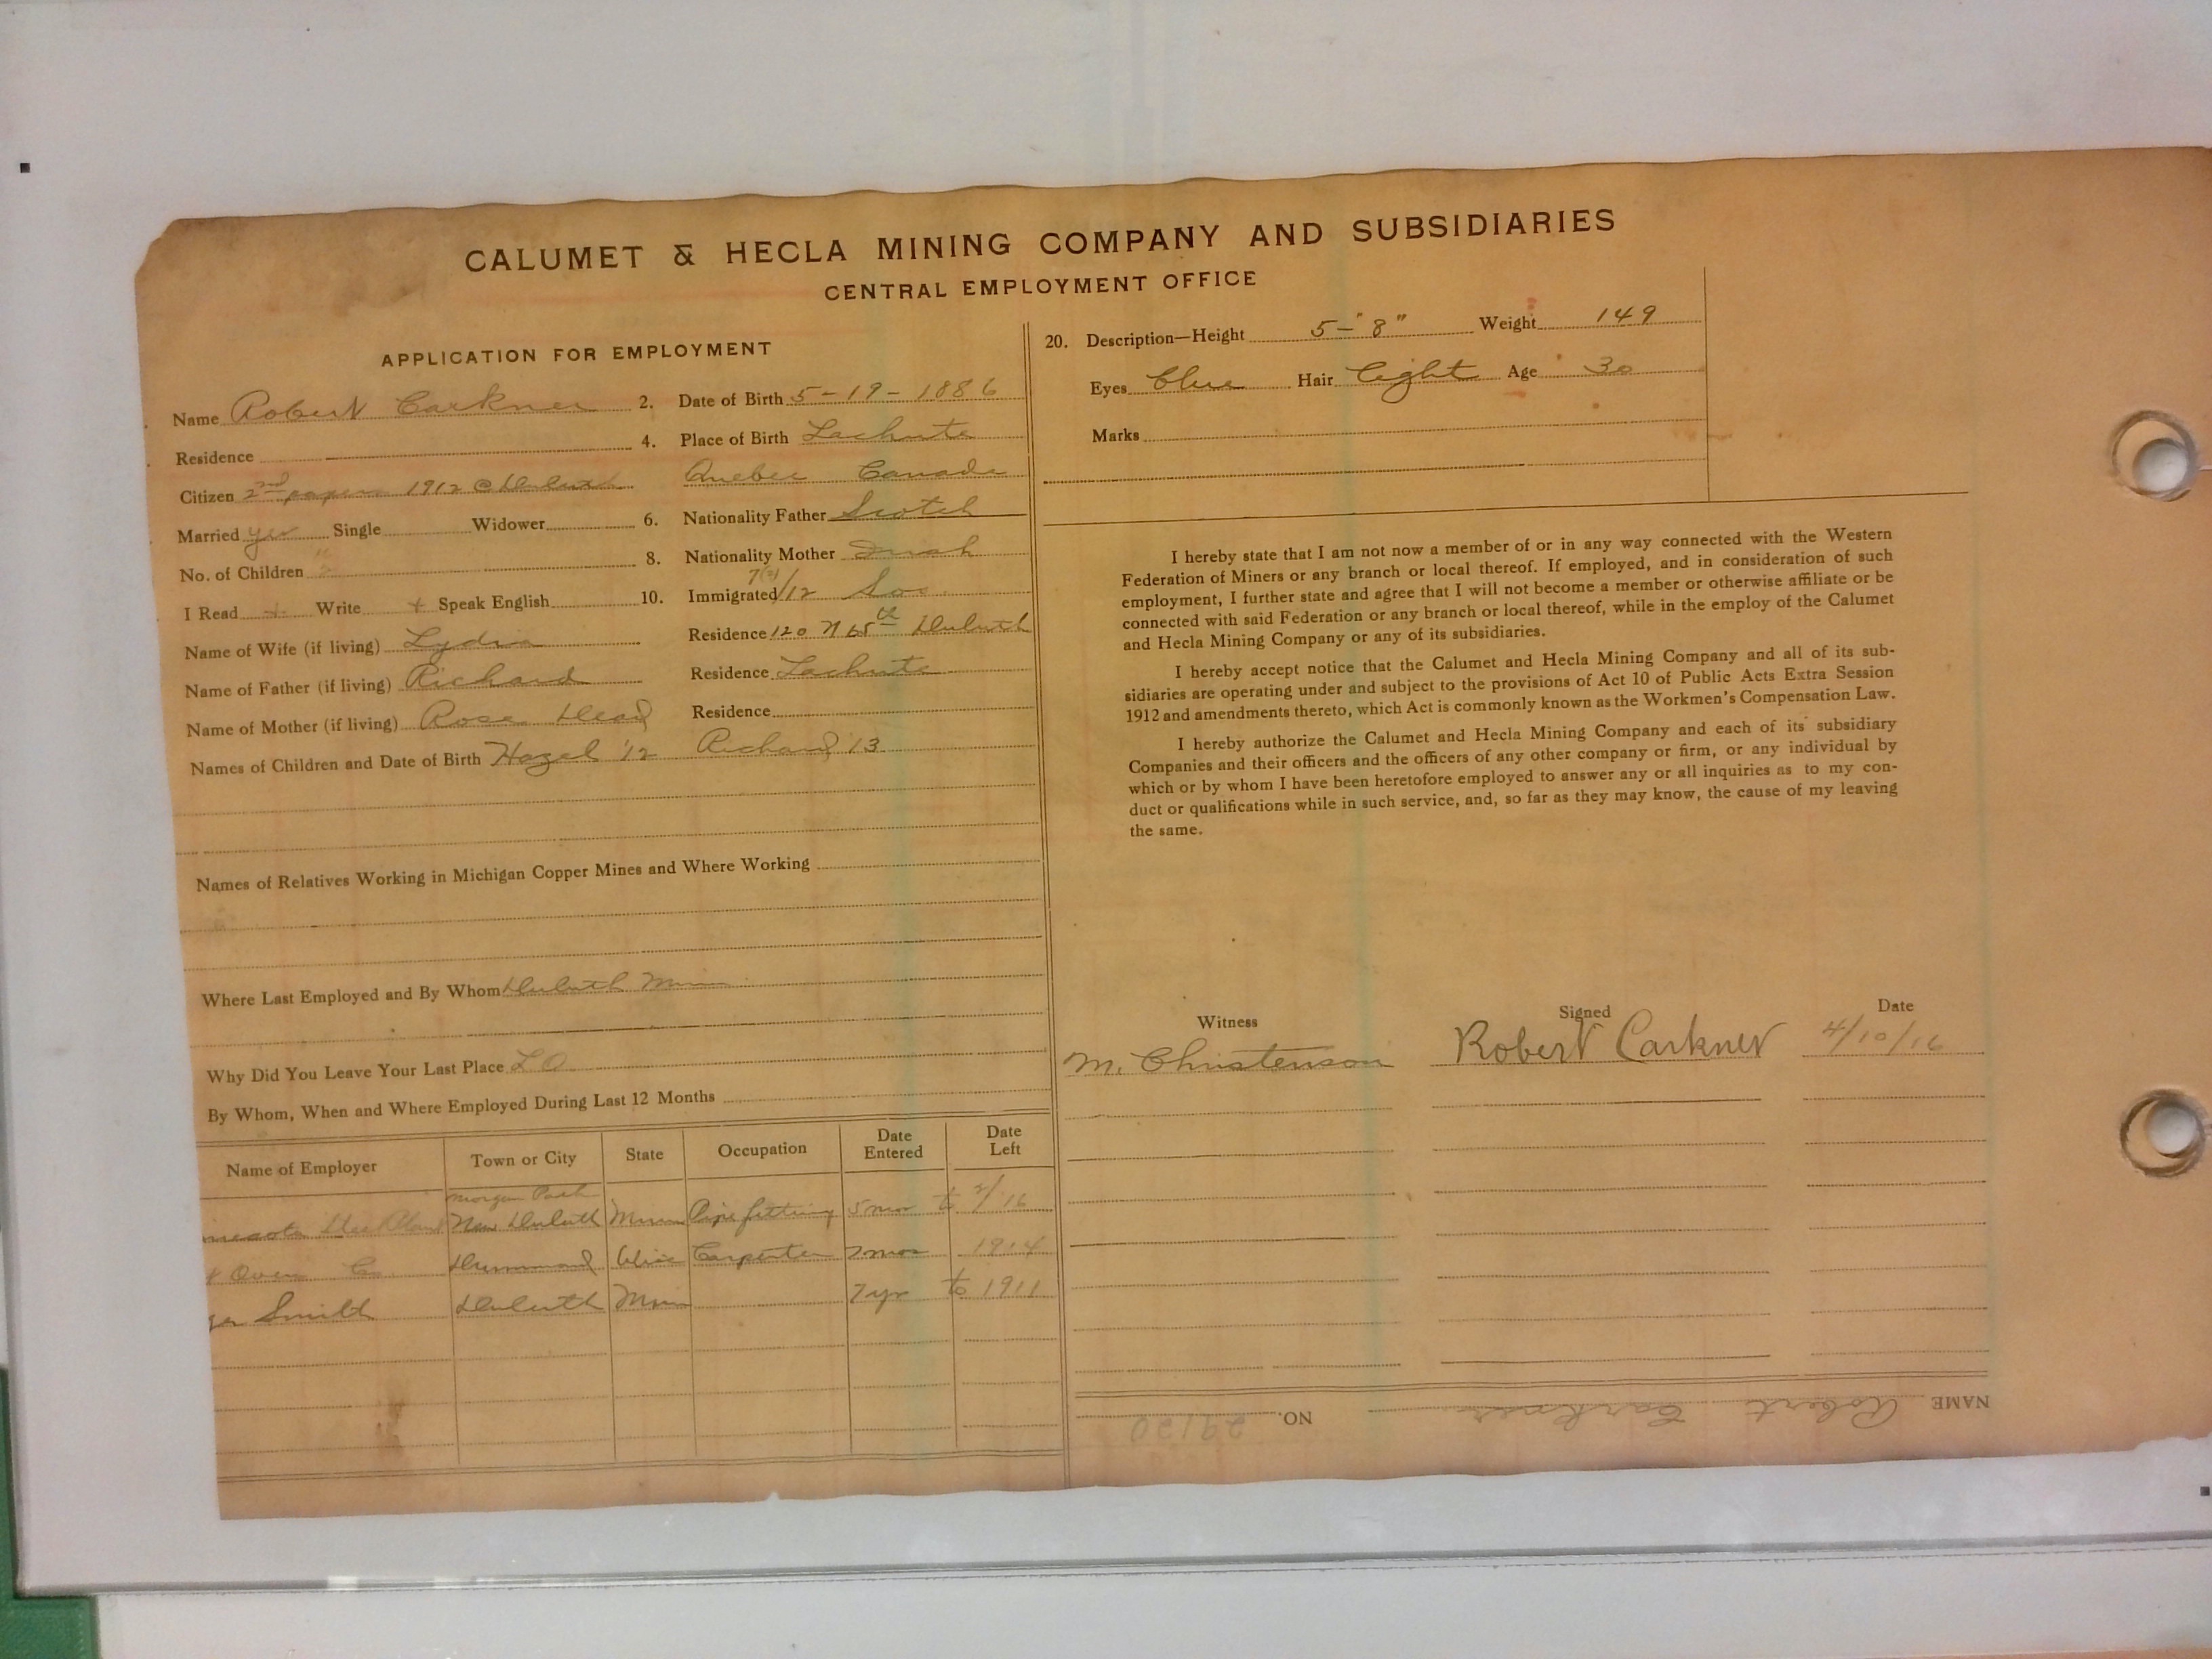 CALUMET & HECLA MINING COMPANY AND SUBSIDIARIES
CENTRAL EMPLOYMENT OFFICE
APPLICATION FOR EMPLOYMENT
Name Robert Carkner 2. Date of Birth 5-19-1886
Residence 4. Place of Birth Lachute
Citizen 2nd papers 1912 @ Duluth Quebec Canada
Married yes Single Widower 6. Nationality Father Scotch
No. of Children 8. Nationality Mother Irish
I Read + Write + Speak English 10. Immigrated /12 Soo
Name of Wife (if living) Lydia Residence 120 N 65th Duluth
Name of Father (if living) Richard Residence Lachute
Name of Mother (if living) Rose Dead Residence
Names of Children and Date of Birth Hazel '12 Richard '13
Names of Relatives Working in Michigan Copper Mines and Where Working
Where Last Employed and By Whom Duluth Minn
Why Did You Leave Your Last Place L O
By Whom, When and Where Employed During Last 12 Months
Name of Employer Town or City State Occupation Date Entered Date Left
Morgan Park
nnesota New Duluth Minn Pipe fitting 5 mos to 2/16
Owen Co. Drummond Wisc Carpenter 7 mos 1914
Smith Duluth Minn 7 yr to 1911
20. Description—Height 5-"8" Weight 149
Eyes blue Hair light Age 30
Marks
I hereby state that I am not now a member of or in any way connected with the Western
Federation of Miners or any branch or local thereof. If employed, and in consideration of such
employment, I further state and agree that I will not become a member or otherwise affiliate or be
connected with said Federation or any branch or local thereof, while in the employ of the Calumet
and Hecla Mining Company or any of its subsidiaries.
I hereby accept notice that the Calumet and Hecla Mining Company and all of its sub-
sidiaries are operating under and subject to the provisions of Act 10 of Public Acts Extra Session
1912 and amendments thereto, which Act is commonly known as the Workmen's Compensation Law.
I hereby authorize the Calumet and Hecla Mining Company and each of its subsidiary
Companies and their officers and the officers of any other company or firm, or any individual by
which or by whom I have been heretofore employed to answer any or all inquiries as to my con-
duct or qualifications while in such service, and, so far as they may know, the cause of my leaving
the same.
Witness Signed Date
M. Christenson Robert Carkner 4/10/16
NAME Robert Carkner NO. 29120